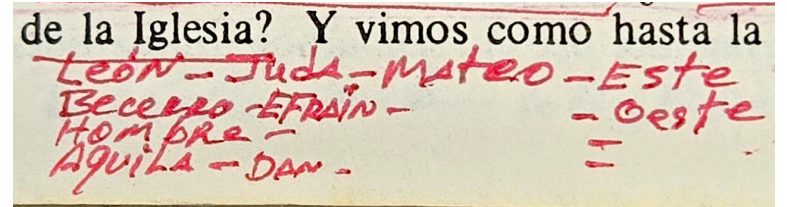 de la Iglesia? Y vimos como hasta la
León - Juda - Mateo - Este
Becerro - EFRAÍN - - Oeste
Hombre - =
AQUILA - DAN -